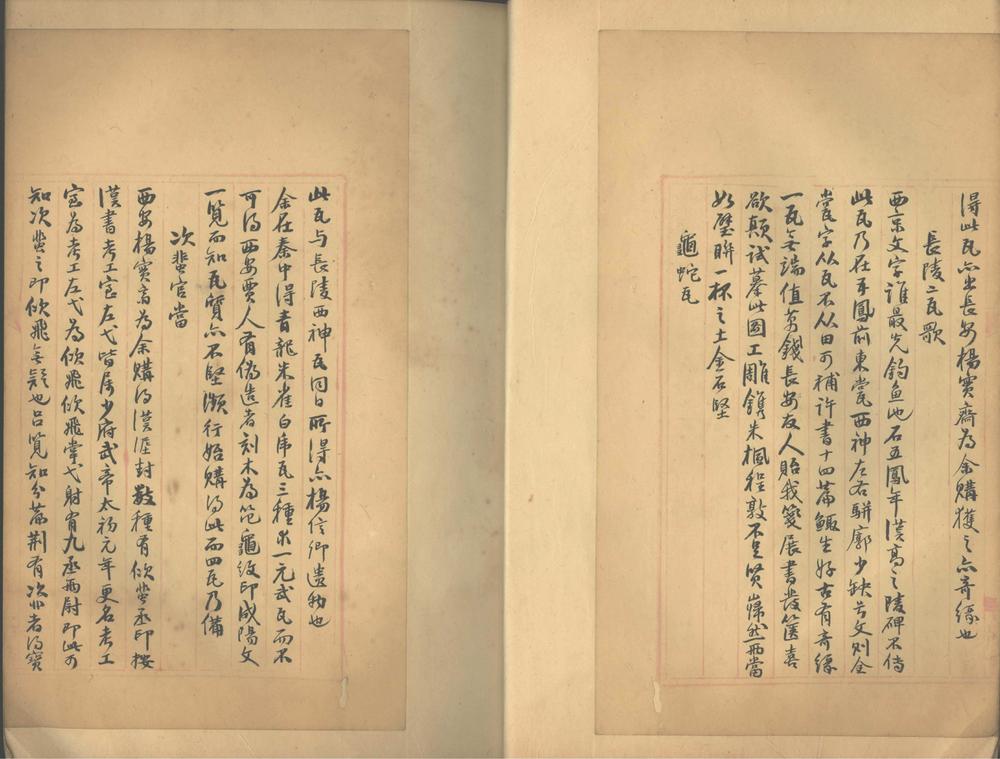 得此瓦亦出長安楊寶齋為余購獲之亦奇緣也
長陵二瓦歌
西京文字誰最先釣魚池石五鳳年漢高之陵碑不傳
此瓦乃在五鳳前東甍西神左右駢廓少缺其文則全
甍字从瓦不从田可補許書十四篇鯫生好古有奇緣
一瓦無端值萬錢長安友人貽我箋展書發篋喜
欲顛試摹此圖工雕鎸朱楓程敦不足賢巋然西當
如璧聯一杯之土金石堅
龜蛇瓦
此瓦与長陵西神瓦同日所得亦楊信卿遺物也
余在秦中得青龍朱雀白虎瓦三種求一元武瓦而不
可得西安賈人有偽造者刻木為笵龜紋印成陽文
一覧而知瓦質亦不堅瀕行始購得此而四瓦乃備
次蜚官當
西安楊寶斋為余購得漢涯封數種有佽蜚丞印按
漢書考工官左弋皆屬少府武帝太初元年更名考工
室為考工左弋為佽飛佽飛掌弋射有九丞兩尉即此可
知次蜚之即佽飛無疑也吕覧知分篇荆有次非者得寶